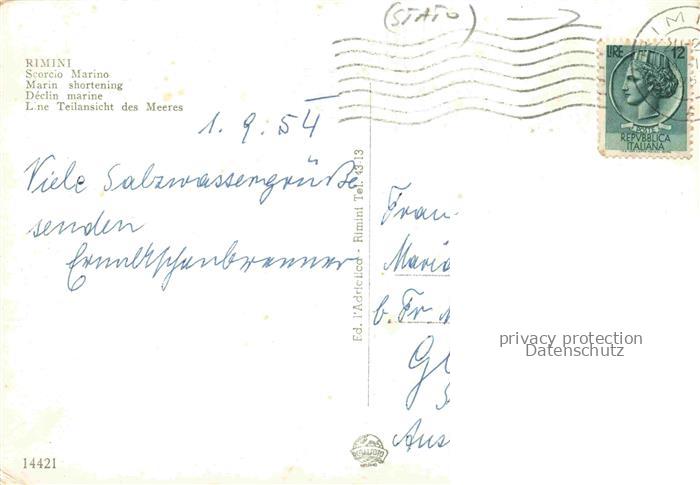 (STATO)
RIMINI
Scorcio Marino
Marin shortening
Déclin marine
Line Teilansicht des Meeres
1. 9. 54
Viele Salzwassergrüße
senden
LIRE 12
POSTE
REPVBBLICA
ITALIANA
Ed. l'Adriatico - Rimini Tel. 43-13
Frau
Maria
b. Fr
privacy protection
Datenschutz
Aus
14421